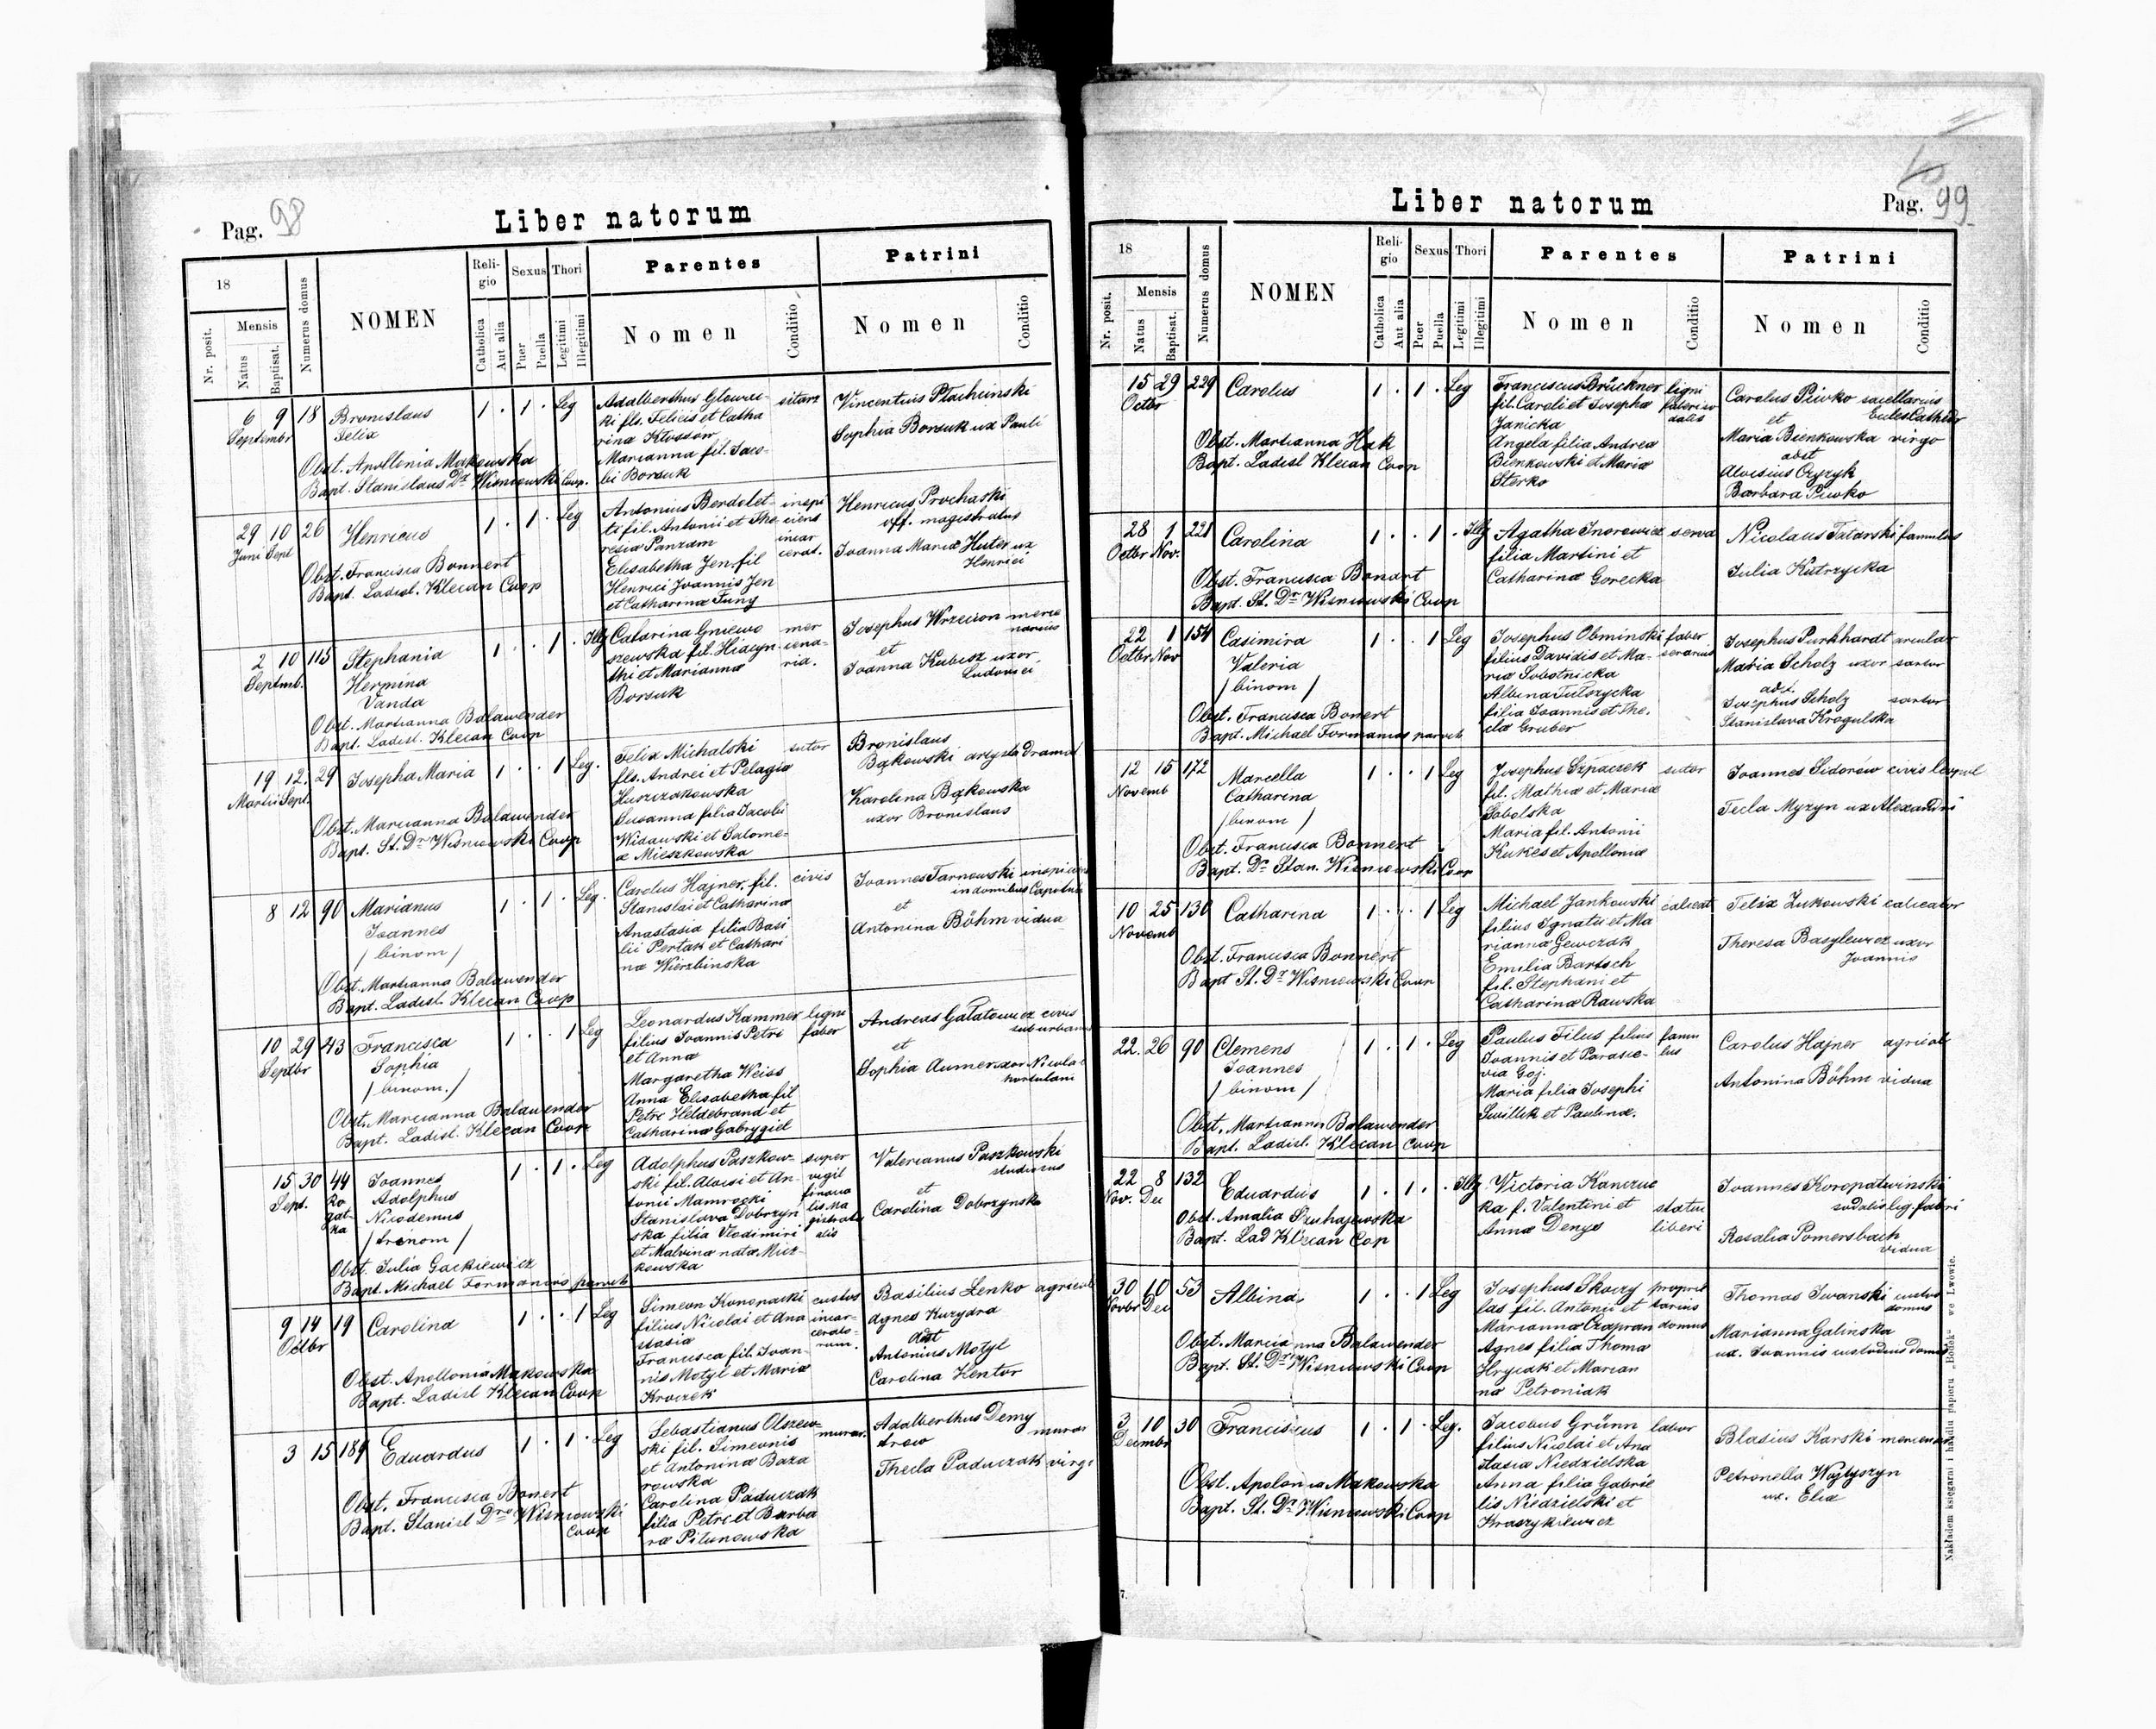 Pag. 98
Liber natorum
18
Nr. posit.
Mensis
Natus
Baptisat.
Numerus domus
NOMEN
Religio
Catholica
Aut alia
Sexus
Puer
Puella
Thori
Legitimi
Illegitimi
Parentes
Nomen
Conditio
Patrini
Nomen
Conditio
6 9 18 Bronislaus 1 . 1 . Leg
Septembr Felix
Obst. Apollonia Makowska
Bapt. Stanislaus Dr Wisniowski Coop.
Adalberthus Glowac-
ki fls. Felicis et Catha
rina Klossow
Marianna fil. Jaco-
bi Borsuk
Vincentius Plachcinski
Sophia Borsuk ux Pauli
29 10 26 Henricus 1 . 1 . Leg
Juni Sept
Obst. Francisca Bonnert
Bapt. Ladisl. Klecan Coop
Antonius Berdolet- inspi
ti fil. Antonii et The ciens
resia Panzam incar
Elisabetha Jen fil cerat.
Henrici Joannis Jen
et Catharina Jung
Henricus Prochaski
off. magistratus
Joanna Maria Huter ux
Henrici
2 10 115 Stephania 1 . . 1 . Illg
Septmb. Hermina
Vanda
Obst. Marianna Balawender
Bapt. Ladisl. Klecan Coop
Catarina Gniewo mer
szewska fil. Hiacyn- cena-
thi et Marianna ria.
Borsuk
Josephus Wrzecion merce
narius
et
Joanna Kubisz uxor
Ludovici
19 12. 29 Josepha Maria 1 . . 1 Leg.
Martii Sept.
Obst. Marianna Balawender
Bapt. St. Dr Wisniowski Coop
Felix Michalski sutor
fls. Andrei et Pelagia
Huszczakowska
Susanna filia Jacobi
Widawski et Salome-
a Mieszkowska
Bronislaus
Bąkowski artysta Dramat
Karolina Bąkowska
uxor Bronislaus
8 12 90 Marianus 1 . 1 . Leg.
Joannes
/ binom /
Obst. Marianna Balawender
Bapt. Ladisl. Klecan Coop
Carolus Hajner, fil. civis
Stanislai et Catharina
Anastasia filia Basi
lii Pertak et Cathari
na Wierzbinska
Joannes Tarnowski inspiciens
in domibus
et
Antonina Böhm vidua
10 29 43 Francisca 1 . . 1 Leg
Septbr Sophia
/ binom. /
Obst. Marianna Balawender
Bapt. Ladisl. Klecan Coop
Leonardus Kammer ligni
filius Joannis Petri faber
et Anna
Margaretha Weiss
Anna Elisabetha fil
Petri Heldebrand et
Catharina Gabrygiel
Andreas Gałatowicz civis
suburbanus
et
Sophia Aumer uxor Nicolai
hortulani
15 30 44 Joannes 1 . 1 . Leg
Sept. Ro Adolphus
gat- Nicodemus
ka / trinom /
Obst. Julia Gackiewicz
Bapt. Michael Formaniosz paroch
Adolphus Paszkow- super
ski fil. Aloisi et An- vigil
tonii Mamrocki finan
Stanislava Dobrzyn- lis Ma
ska filia Vlodimiri gistratu
et Malvina nata Micz- alis
kowska
Valerianus Paszkowski
studiosus
et
Carolina Dobrzynska
9 14 19 Carolina 1 . . 1 Leg
Octbr
Obst. Apollonia Makowska
Bapt. Ladisl Klecan Coop
Simeon Konopacki custos
filius Nicolai et Ana incar-
stasia cerato-
Francisca fil. Joan- rum.
nis Motyl et Maria
Kroczek
Basilius Lenko agricol
Agnes Kuzydra
adst
Antonius Motyl
Carolina Kentor
3 15 189 Eduardus 1 . 1 . Leg
Obst. Francisca Bonert
Bapt. Stanisl Dro Wisniowski
Coop
Sebastianus Olszew- murar.
ski fil. Simeonis
et Antonina Baza
rowska
Carolina Paduczak
filia Petri et Barba
ra Pitunowska
Adalberthus Demy
murar
Thecla Paduczak virgo
Liber natorum
Pag. 99
18
Nr. posit.
Mensis
Natus
Baptisat.
Numerus domus
NOMEN
Religio
Catholica
Aut alia
Sexus
Puer
Puella
Thori
Legitimi
Illegitimi
Parentes
Nomen
Conditio
Patrini
Nomen
Conditio
15 29 229 Carolus 1 . 1 . Leg
Octbr
Obst. Marianna Hak
Bapt. Ladisl Klecan Coop
Franciscus Brückner ligni
fil. Caroli et Josepha fabri so
Janicka dalis
Angela filia Andrea
Bienkowski et Maria
Sterko
Carolus Piwko sacellarius
et Eccles Cathedr
Maria Bienkowska virgo
adst
Aloisius Czyzyk
Barbara Piwko
28 1 221 Carolina 1 . . 1 . Illg
Octbr Nov.
Obst. Francisca Bonart
Bapt. St. Dr Wisniowski Coop
Agatha Inorowicz serva
filia Martini et
Catharina Gorecka
Nicolaus Tatarski famulus
Julia Kutrzycka
22 1 154 Casimira 1 . . 1 Leg
Octbr Nov Valeria
/ binom /
Obst. Francisca Bonert
Bapt. Michael Formaniosz paroch
Josephus Obminski faber
filius Davidis et Ma- serarius
ria Sobotnicka
Albina Tulszycka
filia Joannis et The-
cla Gruber
Josephus Purkhardt arcular
Maria Scholz uxor sartor
adst.
Josephus Scholz sartor
Stanislava Krogulska
12 15 172 Marcella 1 . . 1 Leg
Novemb Catharina
/ binom /
Obst. Francisca Bonnert
Bapt. Dr Stan. Wisniowski Coop
Josephus Szpaczek sutor
fil. Mathia et Maria
Sobolska
Maria fil. Antonii
Kukes et Apollonia
Joannes Sidorów civis leopol
Tecla Myzyn ux Alexandri
10 25 130 Catharina 1 . . 1 Leg
Novemb
Obst. Francisca Bonnert
Bapt St. Dr Wisniowski Coop
Michael Jankowski calceat
filius Ignatii et Ma
rianna Gewczak
Emilia Bartsch
fil. Stephani et
Catharina Rawska
Felix Zukowski calceator
Theresa Basylewicz uxor
Joannis
22. 26 90 Clemens 1 . 1 . Leg
Joannes
/ binom /
Obst. Marianna Balawender
Bapt. Ladisl. Klecan Coop
Paulus Filus filius famu
Joannis et Parasce- lus
via Goj.
Maria filia Josephi
Switlik et Paulina.
Carolus Hajner agricol
Antonina Böhm vidua
22 8 132 Eduardus 1 . 1 . . Illg
Nov. Dec
Obst. Amalia Szuhajewska
Bapt. Lad Klecan Cop
Victoria Kanczuc
ka f. Valentini et status
Anna Denys liberi
Joannes Koropatwinski
sodalis lig. fabri
Rosalia Pomersbach
vidua
30 10 53 Albina 1 . . 1 Leg
Novbr Dec
Obst. Marcianna Balawender
Bapt. St. Dr Wisniowski Coop
Josephus Skoczy propri
las fil. Antonii et tarius
Marianna Czapran domus
Agnes filia Thoma
Hrycak et Marian
na Petroniak
Thomas Iwanski custos
domus
Marianna Galinska
ux. Joannis custodius domus
3 10 30 Franciscus 1 . 1 . Leg.
Decembr
Obst. Apolonia Makowska
Bapt. St. Dr Wisniowski Coop
Jacobus Grünn labor
filius Nicolai et Ana
stasia Niedzielska
Anna filia Gabrie
lis Niedzielski et
Kraszykiewicz
Blasius Karski mercenar
Petronella Wojtyszyn
ux. Elia
Nakładem księgarni i handlu papieru „Bodek“ we Lwowie.